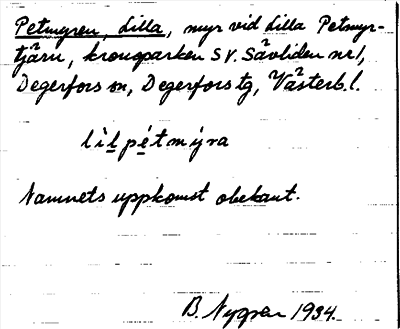 Petmyren, Lilla, myr vid Lilla Petmyr-
tjärn, kronoparken SV. Sävliden nr 1,
Degerfors sn, Degerfors tg, Västerb. l.
lìl pétmýra
Namnets uppkomst obekant.
B. Nygren 1934.